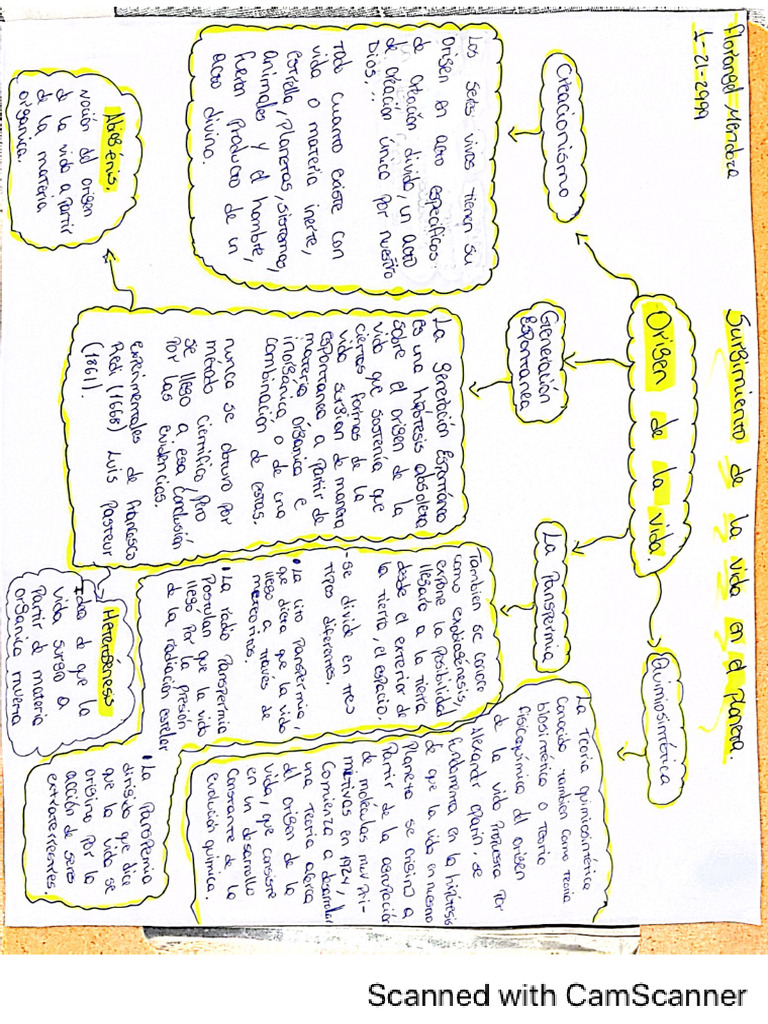 Florangel Mendoza
1-21-2999
Surgimiento de la vida en el planeta.
Origen de la vida.
Creacionismo
Los seres vivos tienen su
origen en acto especificos:
de creación divida, un acto
de creación única por nuestro
Dios,..
Todo cuanto existe con
vida o materia inerte,
estrella, Planetas, sistemas,
animales y el hombre,
fueron Producto de un
acto divino.
Generación
Espontanea
La generación Espontánea
es una hipótesis obsoleta
sobre el origen de la
vida que sostenía que
ciertas formas de la
vida surgian de manera
espontanea a Partir de
materia organica e
inorgánica o de una
combinación de estas.
nunca se obtuvo por
método científico, Pero
se llego a esa conclusión
Por las evidencias.
experimentales de francesco
Redi (1668) Luis Pasteur
(1861).
Abiogénis.
noción del origen
de la vida a partir
de la materia
organica.
Heterogénesis
Idea de que la
vida surgio a
Partir d materia
organica muerta
La Panspermia
Tambien se conoce
como exobiogénesis,
expone la Posibilidad
llegara a la tierra
desde el exterior de
la tierra, el espacio.
-se divide en tres
tipos diferentes.
• La Lito Panspermia,
que dicta que la vida
llego a través de
meteoritos.
• La radio Panspermia
Postulan que la vida
llego Por la presión
de la radiación estelar
• La Panspermia
dirigida que dice
que la vida se
origino Por la
acción de seres
extraterrestres.
Quimiosintética
La Teoria quimiosintética
Conocida tambien como Teoria
biosintética o Teoria
fisicoquimica del origen
de la vida Propuesta por
Alexandr Oparin, se
fundamenta en la hipótesis
de que la vida en nuestro
Planeta se origino a
Partir de la agrupación
de moleculas muy Pri-
mitivas en 1924,
Comienza a desarrollar
una Teoria acerca
del origen de la
vida, que consiste
en un desarrollo
Constante de la
evolución quimica.
Scanned with CamScanner